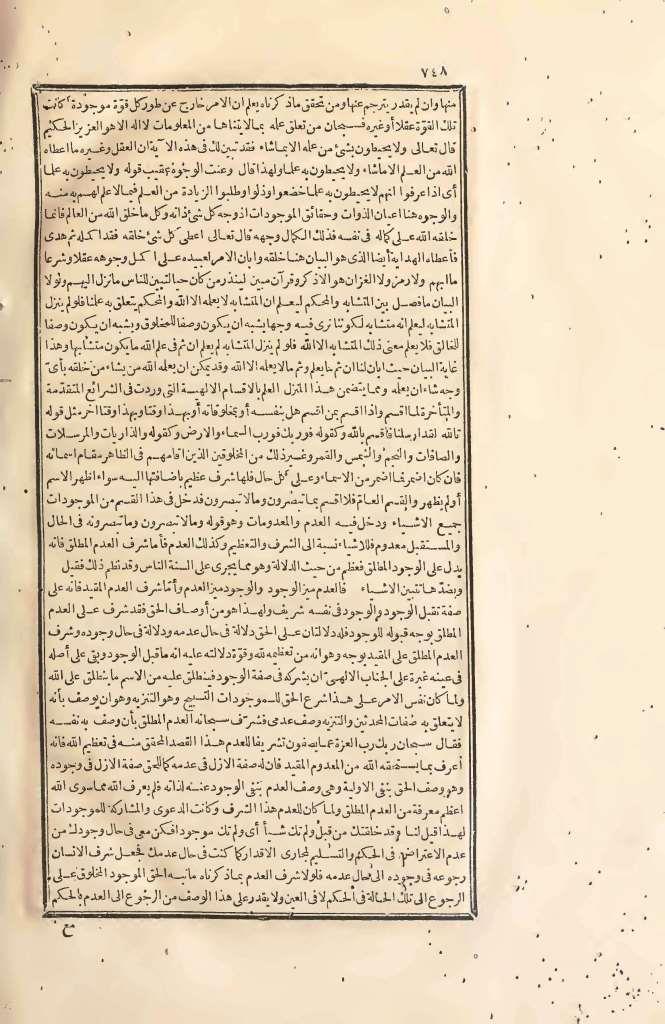 ٧٤٨
منها وان لم يقدر يترجم عنها ومن تحقق ما ذكرناه يعلم ان الامر خارج عن طور كل قوة موجودة كانت
تلك القوة عقلا أو غيره فسبحان من تعلق علمه بما لا يتناها من المعلومات لا اله الا هو العزيز الحكيم
قال تعالى ولا يحيطون بشئ من علمه الا بما شاء فقد تبين لك في هذه الآية ان العقل وغيره ما اعطاه
الله من العلم الا ما شاء ولا يحيطون به علما ولهذا قال وعنت الوجوه عقيب قوله ولا يحيطون به علما
أى اذا عرفوا انهم لا يحيطون به علما خضعوا وذلوا وطلبوا الزيادة من العلم فيما لا علم لهم به منه
والوجوه هنا اعيان الذوات وحقائق الموجودات اذ وجه كل شئ ذاته وكل ما خلق الله من العالم فانما
خلقه الله على كماله فى نفسه فذلك الكمال وجهه قال تعالى اعطى كل شئ خلقه فقد اكمله ثم هدى
فأعطاه الهداية أيضا الذى هو البيان هنا خلقه وابان الامر لعبيده على اكمل وجوهه عقلا وشرعا
ما ابهم ولا رمز ولا الغز ان هو الا ذكر وقرآن مبين لينذر من كان حيا لتبين للناس ما نزل اليهم ولولا
البيان ما فصل بين المتشابه والمحكم ليعلم ان المتشابه لا يعلمه الا الله والمحكم يتعلق به علمنا فلو لم ينزل
المتشابه ليعلم انه متشابه لكوننا نرى فيه وجها يشبه ان يكون وصفا للمخلوق ويشبه ان يكون وصفا
للخالق فلا يعلم معنى ذلك المتشابه الا الله فلو لم ينزل المتشابه لم يعلم ان ثم فى علم الله ما يكون متشابها وهذا
غاية البيان حيث ابان لنا ان ثم ما يعلم وثم ما لا يعلمه الا الله وقد يمكن ان يعلمه الله من يشاء من خلقه بأى
وجه شاء ان يعلمه ومما يتضمن هذا المنزل العلم بالاقسام الالهية التى وردت فى الشرائع المتقدمة
والمتأخرة لما اقسم واذا اقسم بمن اقسم هل بنفسه أو بمخلوقاته أو بهذا وقتا وبهذا وقتا اخر مثل قوله
تالله لقد ارسلنا فأقسم بالله وكقوله فوربك فورب السماء والارض وكقوله والذاريات والمرسلات
والصافات والنجم والشمس والقمر وغير ذلك من المخلوقين الذين اقامهم فى الظاهر مقام اسمائه
فان كان اضمر فما اضمر من الاسماء وعلى كل حال فلها شرف عظيم باضافتها اليه سواء اظهر الاسم
أو لم يظهر والقسم العام فلا اقسم بما تبصرون وما لا تبصرون فدخل فى هذا القسم من الموجودات
جميع الاشياء ودخل فيه العدم والمعدومات وهو قوله وما لا تبصرون وما تبصرونه فى الحال
والمستقبل معدوم فللاشياء نسبة الى الشرف والتعظيم وكذلك العدم فأما شرف العدم المطلق فانه
يدل على الوجود المطلق فعظم من حيث الدلالة وهو مما يجرى على السنة الناس وقد نظم ذلك فقيل
وبضدها تتبين الاشياء فالعدم ميز الوجود والوجود ميز العدم وأما شرف العدم المقيد فانه على
صفة تقبل الوجود والوجود فى نفسه شريف ولهذا هو من أوصاف الحق فقد شرف على العدم
المطلق بوجه قبوله للوجود فله دلالتان على الحق دلالة فى حال عدمه ودلالة فى حال وجوده وشرف
العدم المطلق على المقيد بوجه وهو انه من تعظيمه لله وقوة دلالته عليه انه ما قبل الوجود وبقى على أصله
فى عينه غيرة على الجناب الالهى ان يشركه فى صفة الوجود فينطلق عليه من الاسم ما ينطلق على الله
ولما كان نفس الامر على هذا شرع الحق للموجودات التسبيح وهو التنزيه وهو ان يوصف بأنه
لا يتعلق به صفات المحدثين والتنزيه وصف عدمى فشرف سبحانه العدم المطلق بأن وصف به نفسه
فقال سبحان ربك رب العزة عما يصفون تشريفا للعدم هذا القصد المحقق منه فى تعظيم الله فانه
أعرف بما يستحقه الله من المعدوم المقيد فان له صفة الازل فى عدمه كما للحق صفة الازل فى وجوده
وهو وصف الحق بنفى الاولية وهى وصف العدم بنفى الوجود عنه لذاته فلم يعرف الله مما سوى الله
اعظم معرفة من العدم المطلق ولما كان للعدم هذا الشرف وكانت الدعوى والمشاركة للموجودات
لهذا قيل لنا وقد خلقتك من قبل ولم تك شيأ أى ولم تك موجودا فكن معى فى حال وجودك من
عدم الاعتراض فى الحكم والتسليم لمجارى الاقدار كما كنت فى حال عدمك فجعل شرف الانسان
رجوعه فى وجوده الى حال عدمه فلولا شرف العدم بما ذكرناه ما نبه الحق الموجود المخلوق على
الرجوع الى تلك الحالة فى الحكم لا فى العين ولا يقدر على هذا الوصف من الرجوع الى العدم بالحكم
مع